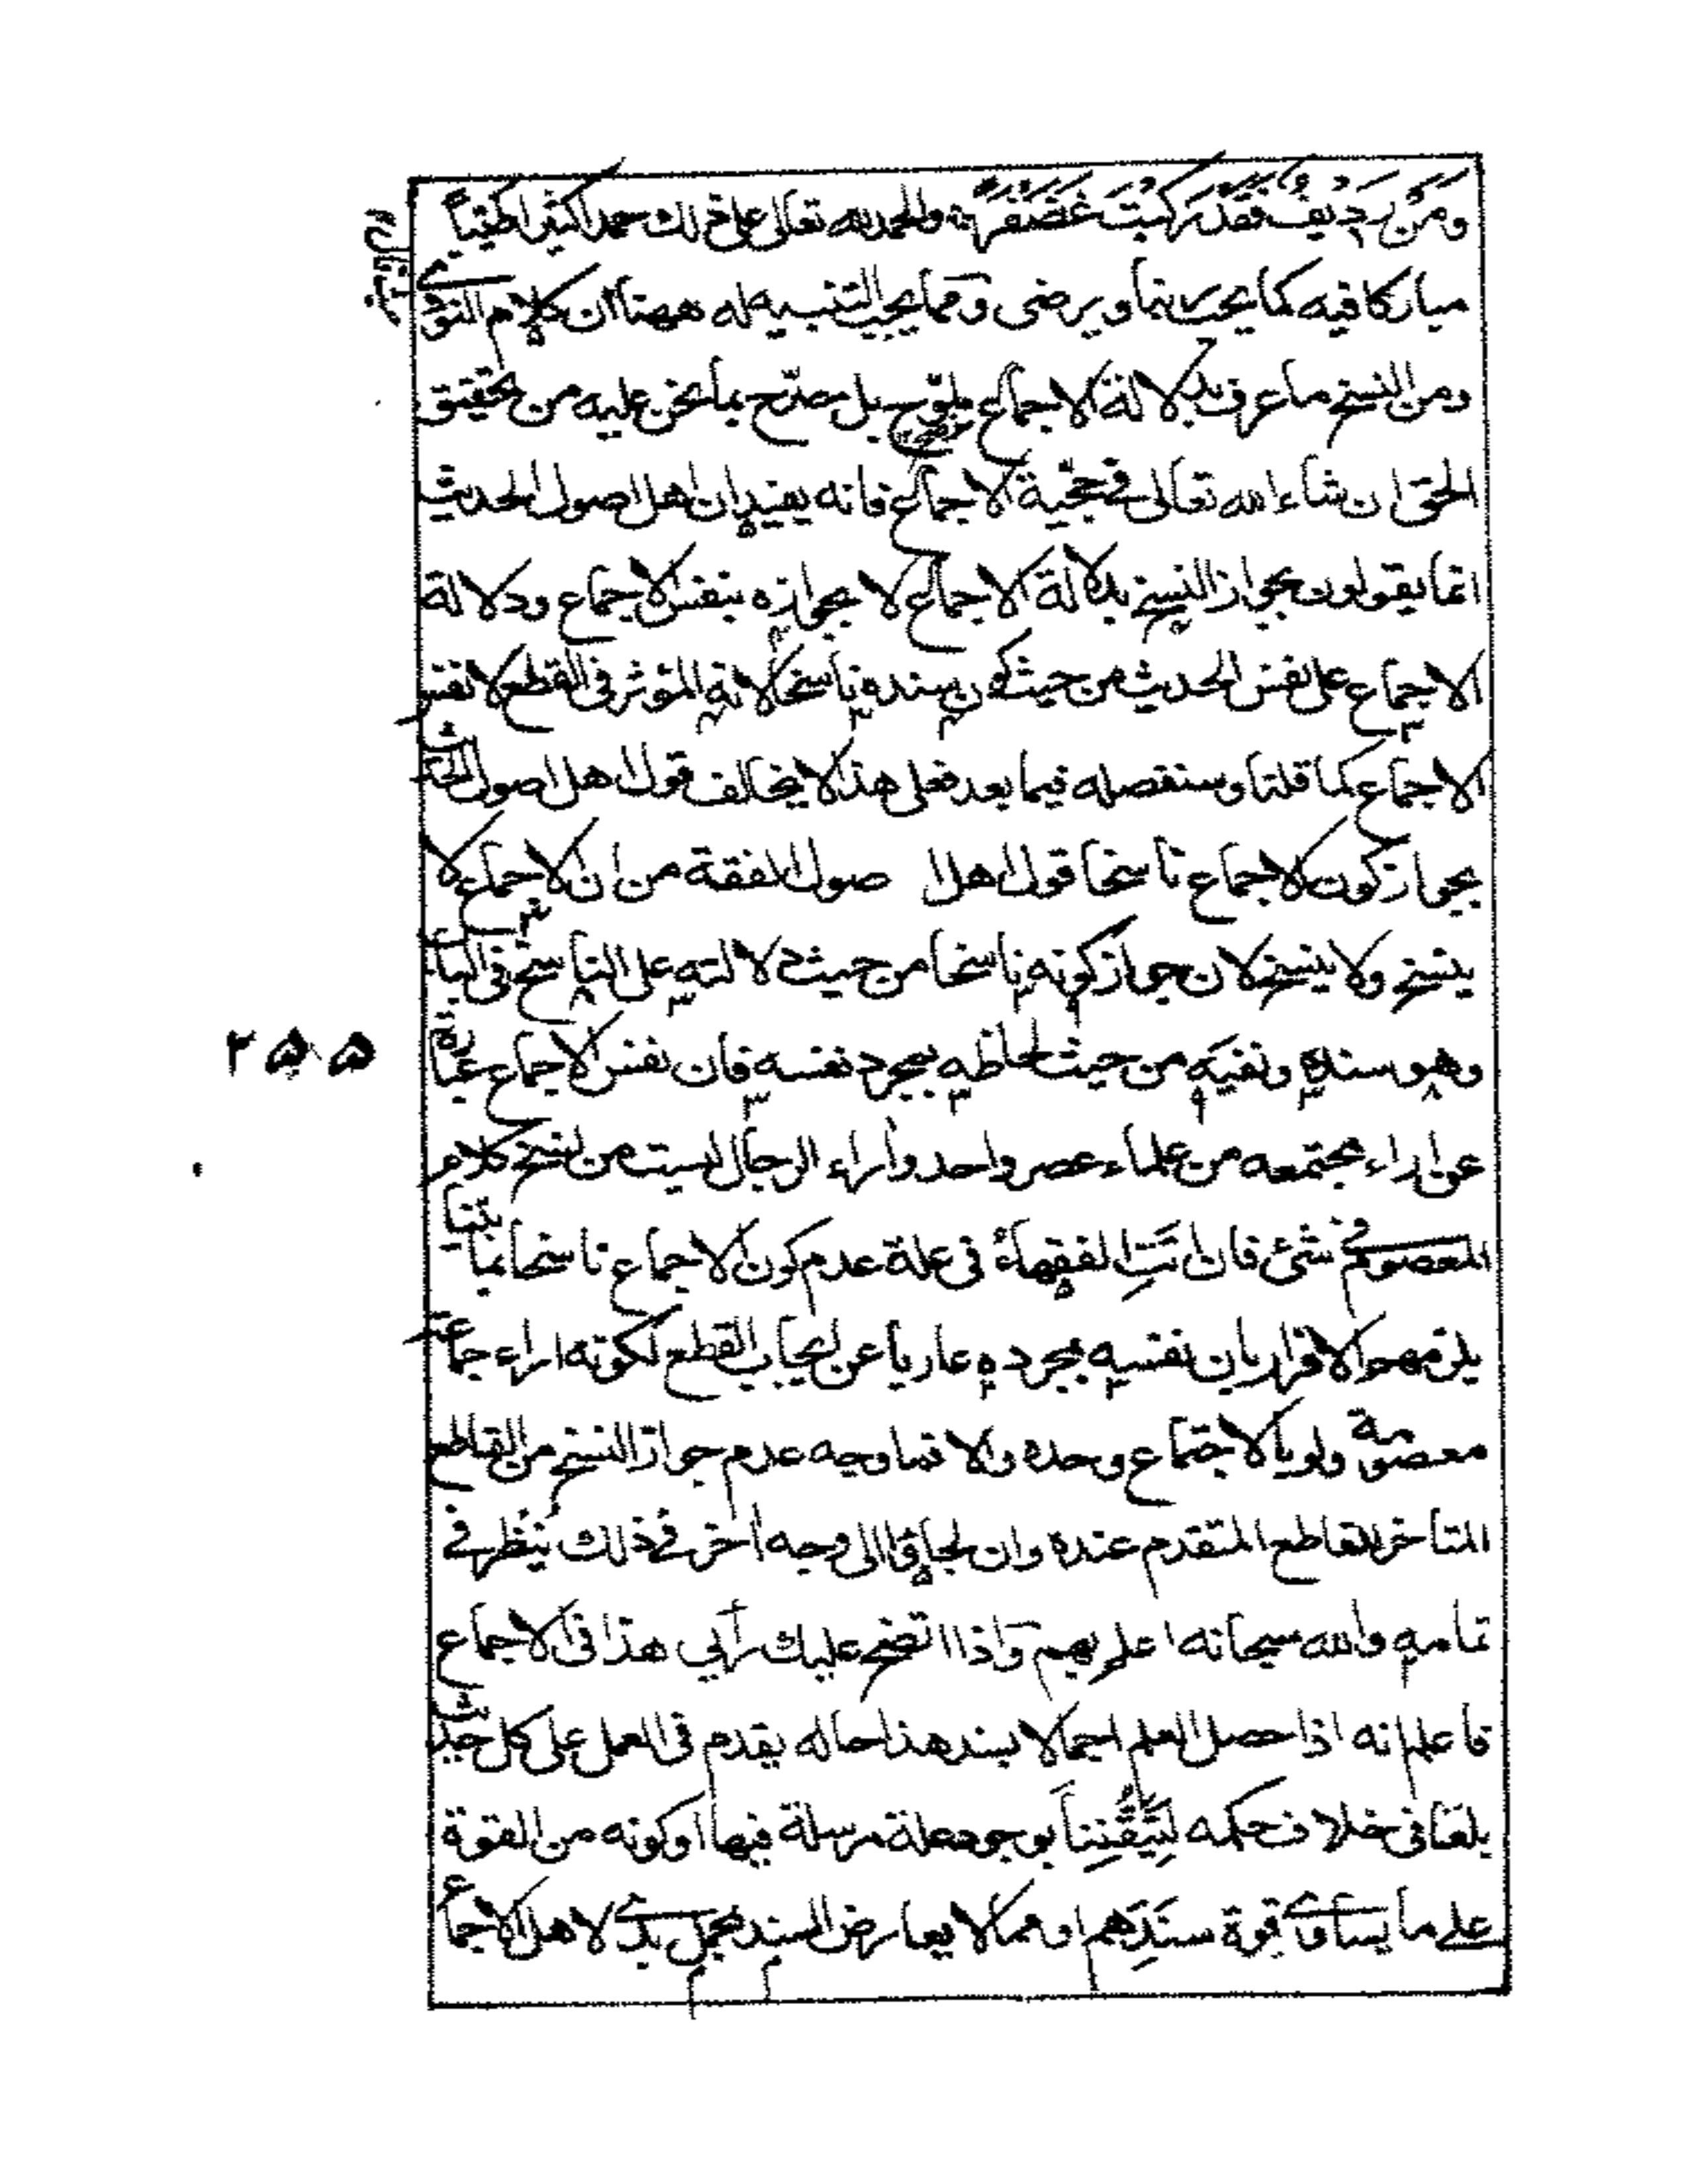 ومن رديف فقد ركبت غضنفرا والحمد لله تعالى على ذلك حمدا كثيرا طيبا
مباركا فيه كما يحب ربنا ويرضى ومما يجب التنبيه له ههنا ان كلام النووي
ومن النسخ ما عرف بدلالة الاجماع ملوح بل مصرح بما نحن عليه من تحقيق
الحق ان شاء الله تعالى في حجية الاجماع فانه يفيد ان اهل اصول الحديث
انما يقولون بجواز النسخ بدلالة الاجماع لا بجوازه بنفس الاجماع ودلالة
الاجماع على نفس الحديث من حيث كون سنده ناسخا لانه المؤثر في القطع لا نفس
الاجماع كما قلنا وسنفصله فيما بعد فعلى هذا لا يخالف قول اهل اصول الحديث
بجواز كون الاجماع ناسخا قول اهل ا صول الفقة من ان الاجماع لا
ينسخ ولا ينسخ لان جواز كونه ناسخا من حيث دلالته على الناسخ في الباب
وهو سنده ونفيه من حيث لحاظه بمجرد نفسه فان نفس الاجماع عبارة
عن اراء مجتمعه من علماء عصر واحد وأراء الرجال ليست من نسخ كلام
المعصوم في شئ فان انت الفقهاء في علة عدم كون الاجماع ناسخا بما بيننا
يلزمهم الاقرار بان نفسه بمجرده عاريا عن ايجاب القطع لكونه اراء جماعة
معصومة ولو بالاجتماع وحده والا فما وجه عدم جواز النسخ من القاطع
المتأخر للقاطع المتقدم عنده وان لجاؤا الى وجه أخر في ذلك ينظر في
تمامه والله سبحانه اعلم بهم واذا اتضح عليك رأيي هذا في الاجماع
فاعلم انه اذا حصل العلم اجمالا بسند هذا حاله يقدم في العمل على كل حديث
بلغنا في خلاف حكمه لتيقننا بوجود علة مرسلة فيها او كونه من القوة
على ما يساوي قوة سندهم او مما لا يعارض السند مجمل بدي لاهل الاجماع
٢٥٥